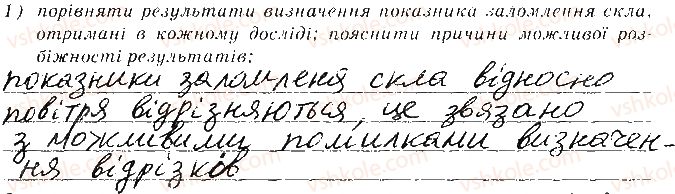 1) порівняти результати визначення показника заломлення скла,
отримані в кожному досліді; пояснити причини можливої роз-
біжності результатів;
показники заломленя скла відносно
повітря відрізняються, це звязано
з можливими помилками визначен-
ня відрізків